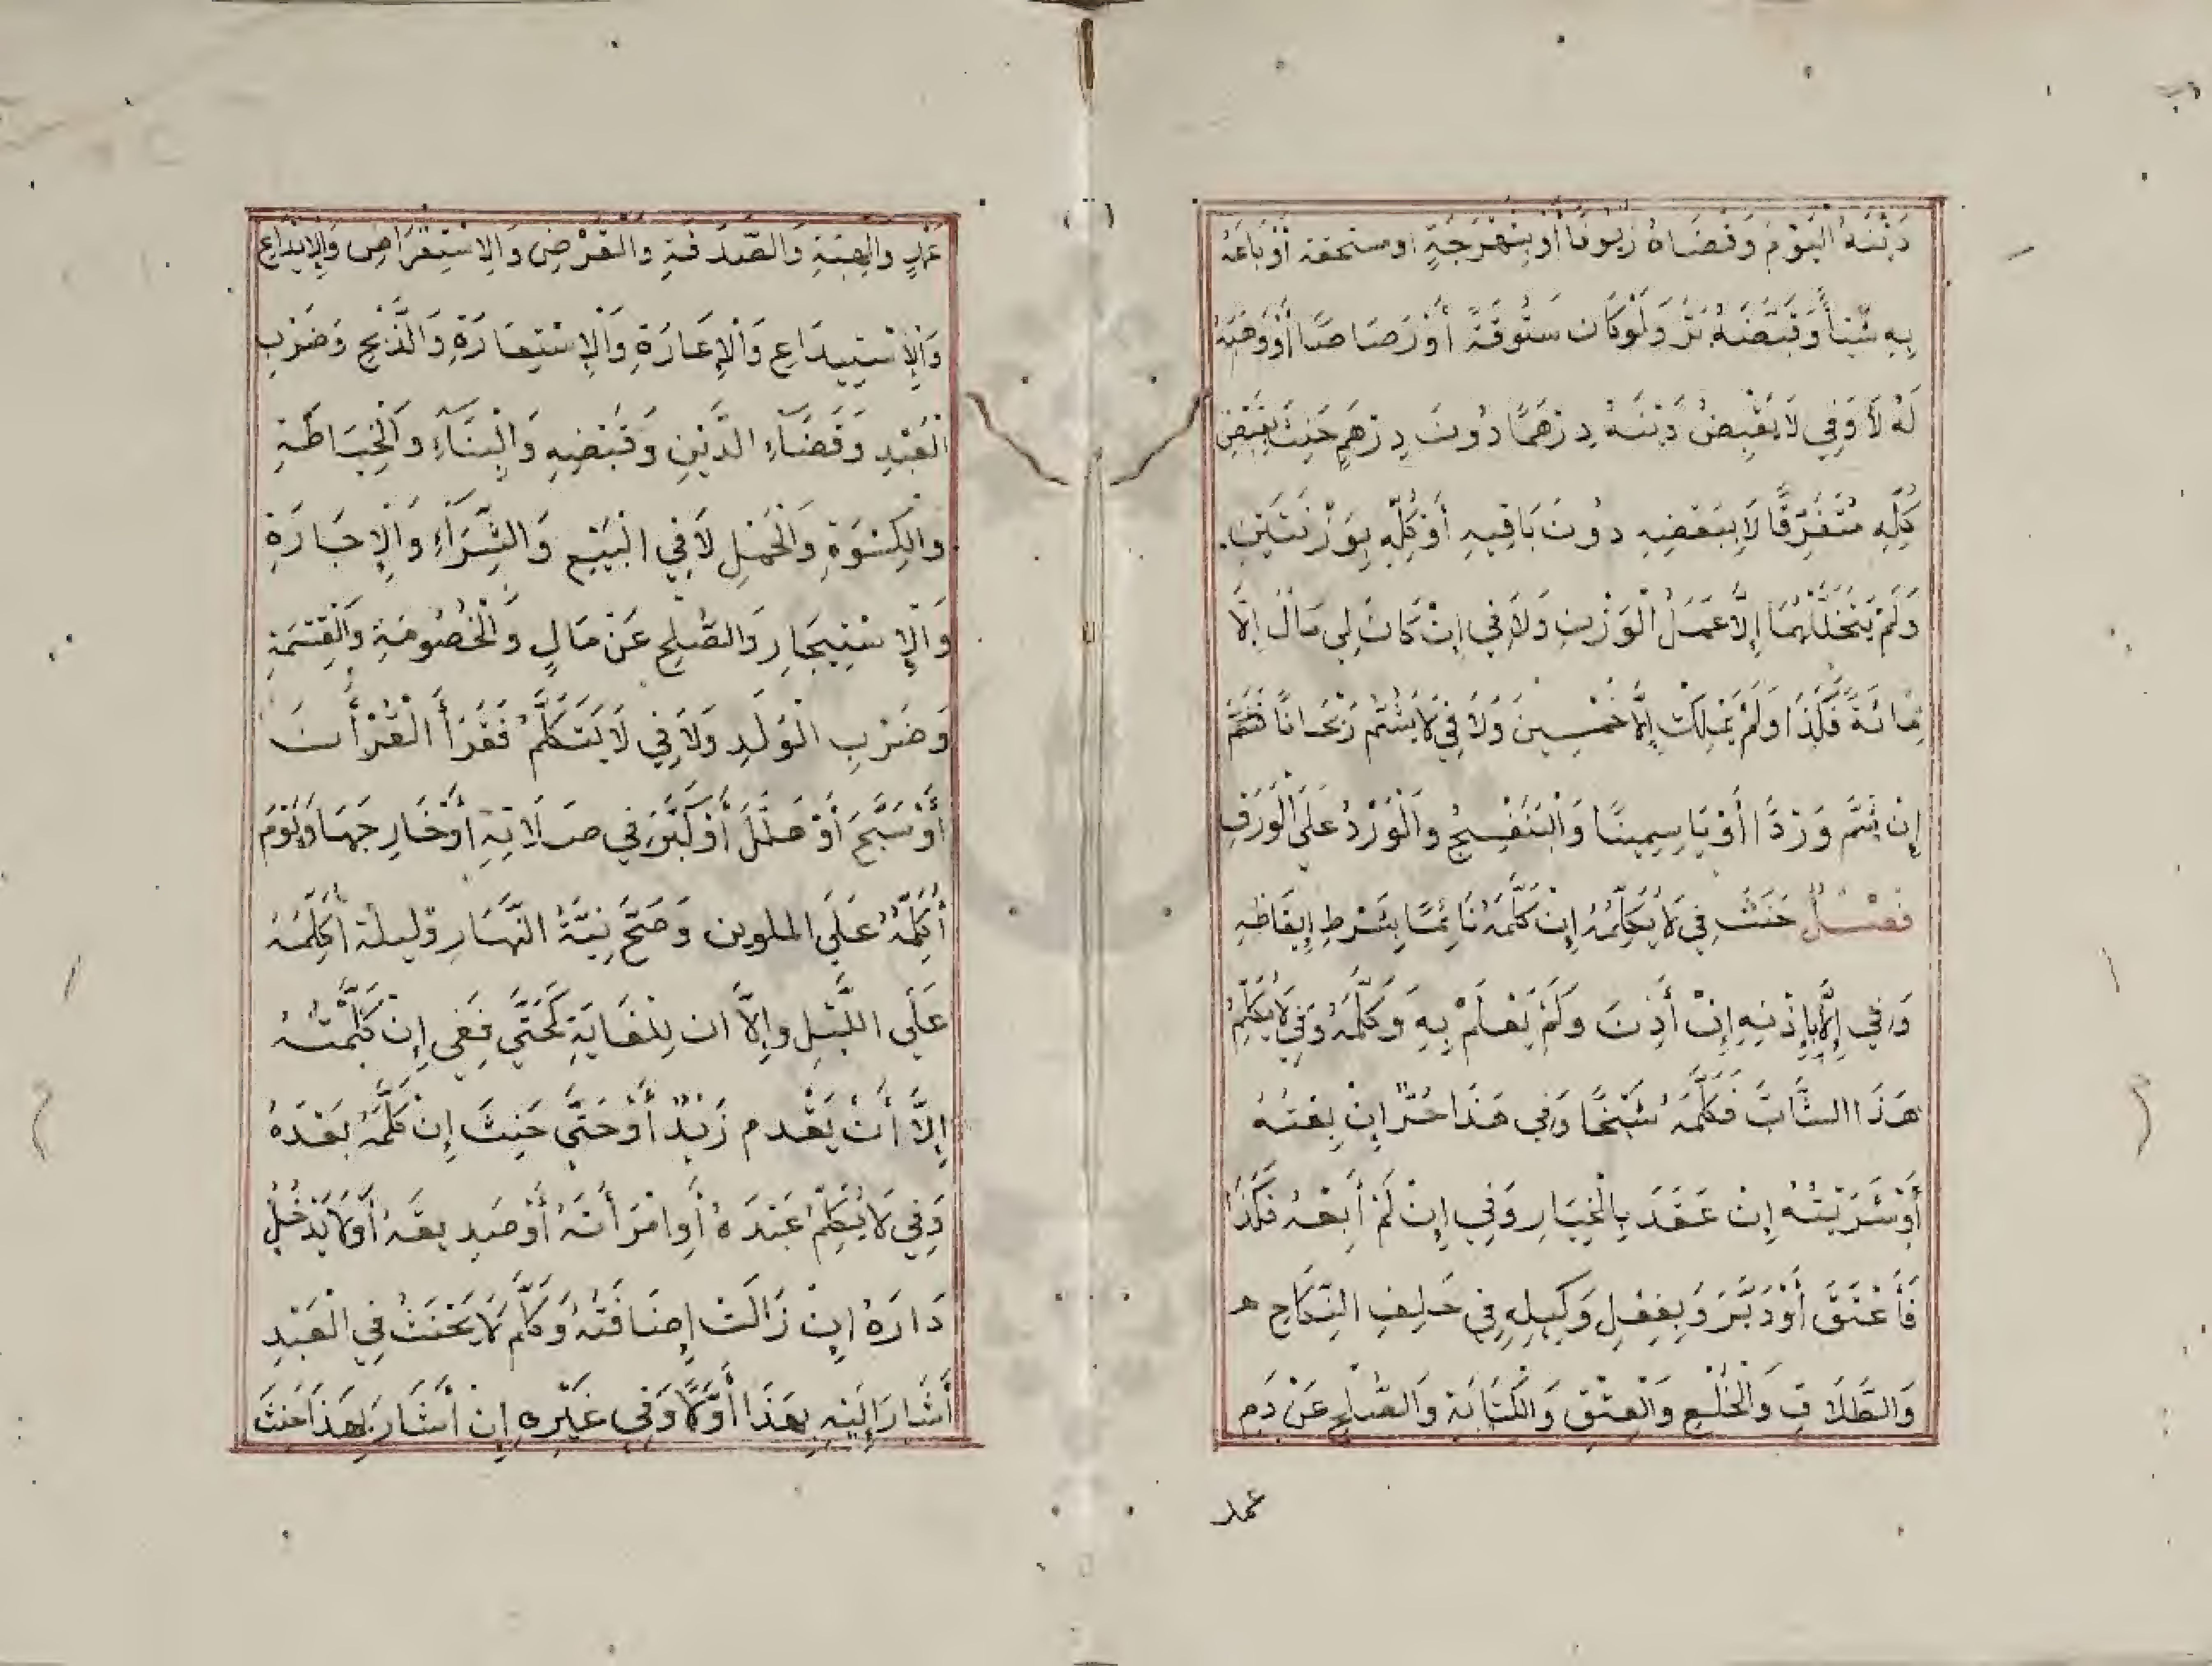 دَيْنَهُ الْيَوْمَ وَقَضَاهُ زُيُوفًا أَوْ بَنَهْرَجَةٍ او مستحقة أَوْ بَاعَهُ
بِهِ شَيْئاً وَقَبَضَهُ بَرَّ وَلَوْ كَان سَتُوقَةً أَوْ رَصَاصًا أَوْ وَهَبَهُ
لَهُ لَا وَفِي لَا يَقْبِضُ دَيْنَهُ دِرْهَمًا دُونَ دِرْهَمٍ حَنِثَ بِقَبْضِ
كُلِّهِ مُتَفَرِّقًا لَا بِبَعْضِهِ دُونَ بَاقِيهِ أَوْ كُلِّهِ بِوَزْنَتَيْنِ
وَلَمْ يَتَخَلَّلْهُمَا إِلَّا عَمَلُ الْوَزْنِ وَلَا فِي إِنْ كَانَ لِي مَالٌ إِلَّا
مِائَةً فَكَذَا وَلَمْ يَمْلِكْ إِلَّا خَمْسِينَ وَلَا فِي لَا يَشُمُّ رَيْحَانًا
إِنْ شَمَّ وَرْدًا أَوْ يَاسِمِينًا وَالْبَنَفْسِجُ وَالْوَرْدُ عَلَى الْوَرَقِ
فصْلٌ حَنَثَ فِي لَا يُكَلِّمُهُ إِنْ كَلَّمَهُ نَائِمًا بِشَرْطِ إِيقَاظِهِ
وَفِي إِلَّا بِإِذْنِهِ إِنْ أَذِنَ وَلَمْ يَعْلَمْ بِهِ وَكَلَّمَهُ وَفِي لَا يُكَلِّمُ
هَذَا الشَّابَّ فَكَلَّمَهُ شَيْخًا وَفِي هَذَا حُرٌّ إِنْ بِعْتُهُ
أَوْ شَرَيْتُهُ إِنْ عَقَدَ بِالْخِيَارِ وَفِي إِنْ لَمْ أَبِعْهُ فَكَذَا
فَأَعْتَقَ أَوْ دَبَّرَ وَبِفِعْلِ وَكِيلِهِ فِي حَلِفِ النِّكَاحِ
وَالطَّلَاقِ وَالْخُلْعِ وَالْعِتْقِ وَالْكِتَابَةِ وَالصُّلْحِ عَنْ دَمِ
عمد
عَمْدٍ وَالْهِبَةِ وَالصَّدَقَةِ وَالْقَرْضِ وَالِاسْتِقْرَاضِ وَالْإِيدَاعِ
وَالْإِسْتِيدَاعِ وَالْإِعَارَةِ وَالْإِسْتِعَارَةِ وَالذَّبْحِ وَضَرْبِ
الْعَبْدِ وَقَضَآءِ الدَّيْنِ وَقَبْضِهِ وَالْبِنَآءِ وَالْخِيَاطَةِ
وَالْكِسْوَةِ وَالْحَمْلِ لَا فِي الْبَيْعِ وَالشِّرَآءِ وَالْإِجَارَةِ
وَالْإِسْتِيجَارِ وَالصُّلْحِ عَنْ مَالٍ وَالْخُصُومَةِ وَالْقِسْمَةِ
وَضَرْبِ الْوَلَدِ وَلَا فِي لَا يَتَكَلَّمُ فَقَرَأَ الْقُرْأَنَ
أَوْ سَبَّحَ أَوْ هَلَّلَ أَوْ كَبَّرَ فِي صَلَاتِهِ أَوْ خَارِجَهَا وَيَوْمَ
أُكَلِّمُهُ عَلَى الملوين وَصَحَّ نِيَّةُ النَّهَارِ وَليلة أُكَلِّمُهُ
عَلَى اللَّيْلِ وَإِلَّا ان لِلْغَايَةِ كَحَتَّى فَفِي إِنْ كَلَّمْتُهُ
إِلَّا أَنْ يَقْدم زَيْدٌ أَوْ حَتَّى حَنِثَ إِنْ كَلَّمَهُ بَعْدَهُ
وَفِي لَا يُكَلِّمُ عَبْدَهُ أَوِ امْرَأَتَهُ أَوْ صَدِيقَهُ أَوْ لَا يَدْخُلُ
دَارَهُ إِنْ زَالَتْ إِضَافَتُهُ وَكَلَّمَ لَا يَحْنَثُ فِي الْعَبْدِ
أَشَارَ إِلَيْهِ بِهَذَا أَوْ لَا وَفِي غَيْرِهِ إِنْ أَشَارَ بِهَذَا حَنِثَ